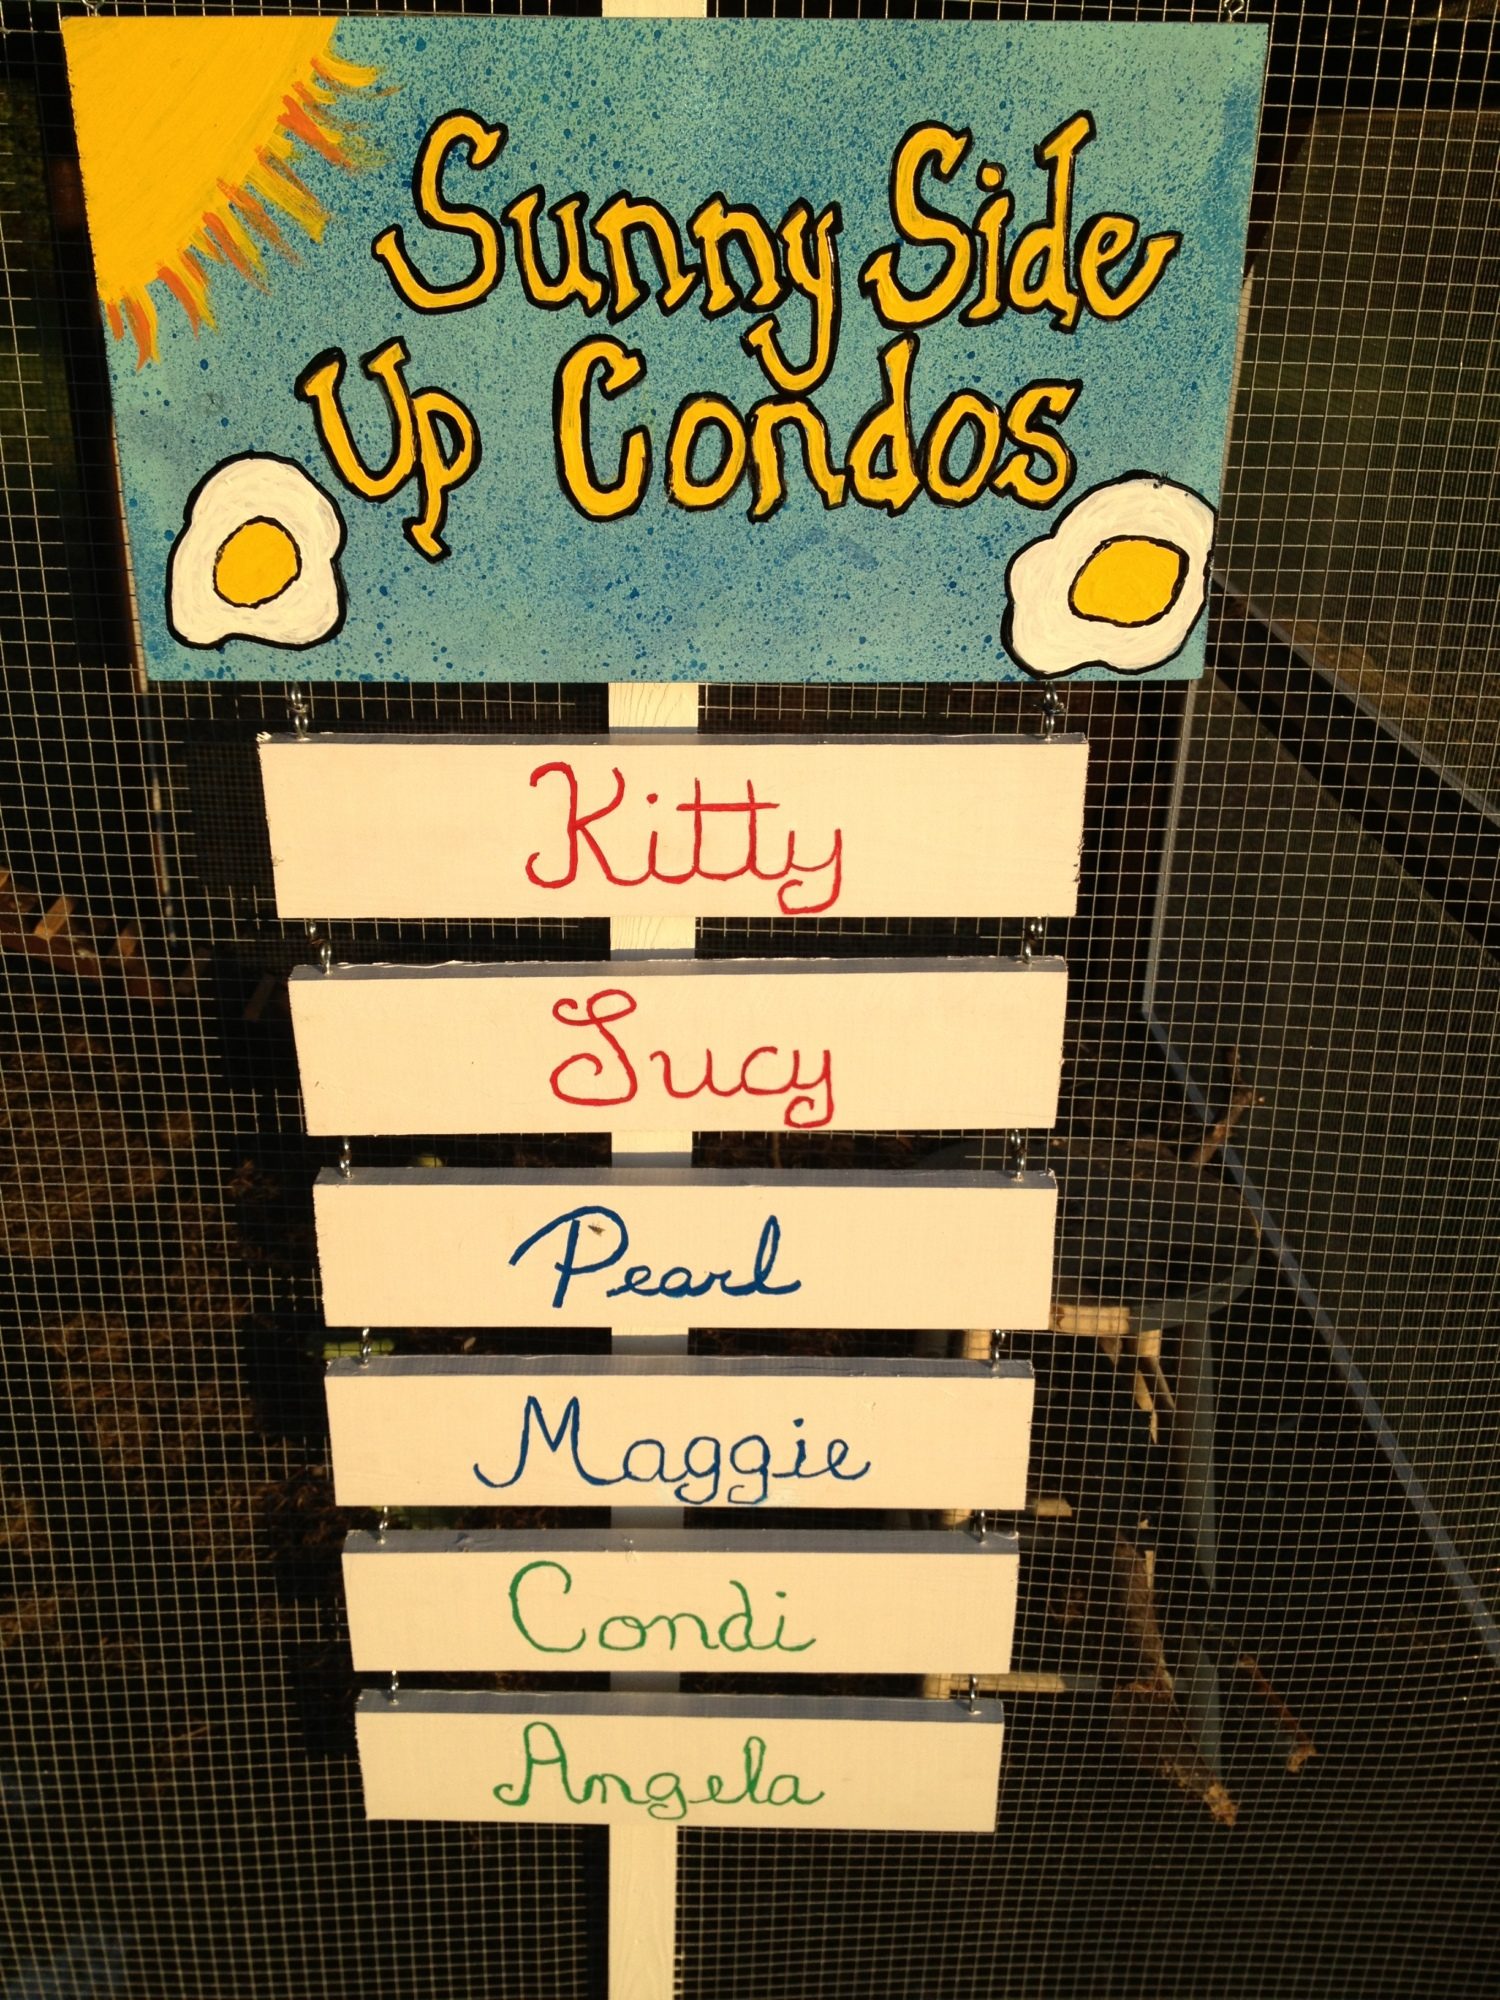 Sunny Side
Up Condos
Kitty
Lucy
Pearl
Maggie
Condi
Angela